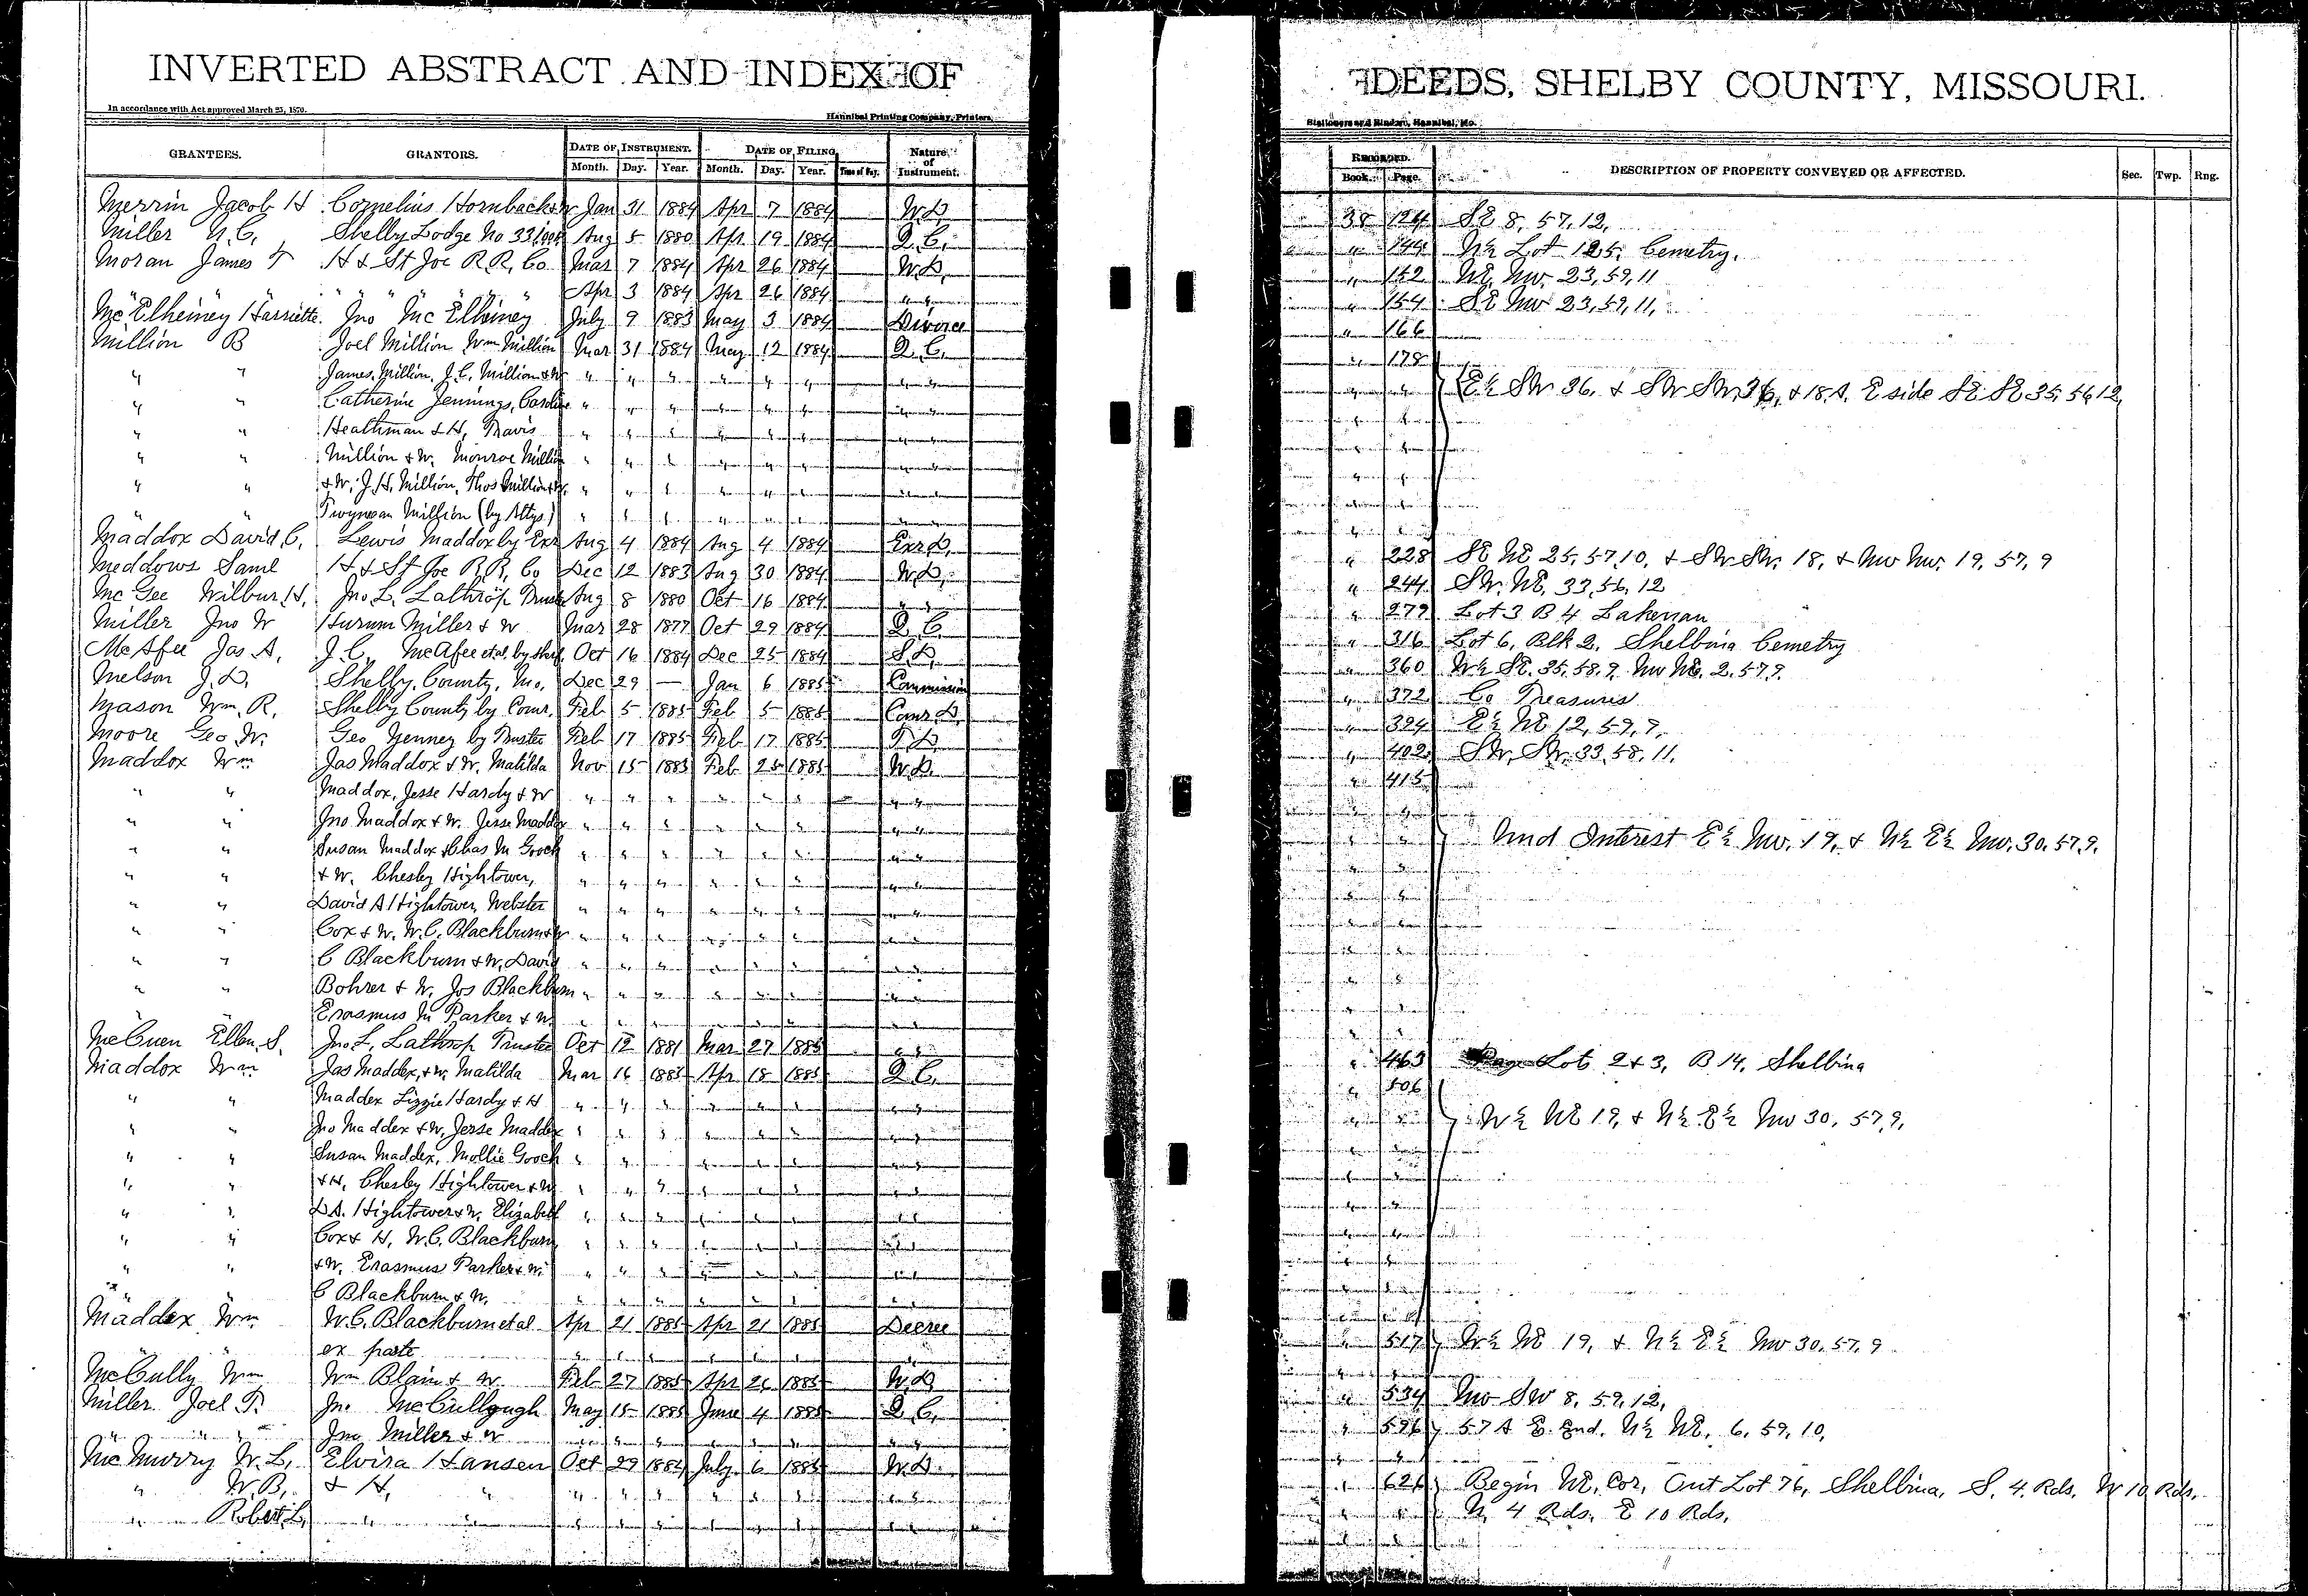 INVERTED ABSTRACT AND INDEX OF DEEDS, SHELBY COUNTY, MISSOURI.
In accordance with Act approved March 25, 1870. Hannibal Printing Company, Printers, Stationers and Binders, Hannibal, Mo.
GRANTEES. GRANTORS. DATE OF INSTRUMENT. DATE OF FILING. Nature of Instrument. RECORDED. DESCRIPTION OF PROPERTY CONVEYED OR AFFECTED. Sec. Twp. Rng.
Month. Day. Year. Month. Day. Year. Time of Day. Book. Page.
Merrin Jacob H Cornelius Hornback & W Jan 31 1884 Apr 7 1884 W.D. 38 124 SE 8, 57, 12,
Miller N.C. Shelby Lodge No 33 Aug 5 1880 Apr 19 1884 Q.C. " 144 N½ Lot 125, Cemetry.
Moran James T H & St Joe R.R. Co Mar 7 1884 Apr 26 1884 W.D. " 152 NE, NW. 23, 59, 11
" " " " " " Apr 3 1884 Apr 26 1884 " " " 154 SE NW 23, 59, 11,
McElheiney Harriette Jno McElheiney July 9 1883 May 3 1884 Divorce " 166
Million B Joel Million, Wm Million Mar 31 1884 May 12 1884 Q.C. " 178
" " James Million, J.C. Million & W " " " " " " " " " " E½ SW 36, & SW SW, 36, & 18 A. E side SE SE 35, 56, 12,
" " Catherine Jennings, Caroline " " " " " " " " " "
" " Heathman & H, Travis " " " " " " " " " "
" " Million & W. Monroe Million " " " " " " " " " "
" " & W, J.H. Million, Thos Million & W. " " " " " " " " " "
" " Twyman Million (by Attys) " " " " " " " " " "
Maddox David C. Lewis Maddox by Exr Aug 4 1884 Aug 4 1884 Exr D. " 228 SE NE 25, 57, 10, & SW SW. 18, & NW NW. 19, 57, 9
Meddows Saml H & St Joe R.R. Co Dec 12 1883 Aug 30 1884 W.D. " 244 SW. NE, 33, 56, 12
McGee Wilbur H. Jno L. Lathrop Trustee Aug 8 1880 Oct 16 1884 " " " 279 Lot 3 B 4 Lakenan
Miller Jno W Hurum Miller & W Mar 28 1877 Oct 29 1884 Q.C. " 316 Lot 6, Blk 2, Shelbina Cemetry
McAfee Jas A. J.C. McAfee et al. by Shff. Oct 16 1884 Dec 25 1884 S.D. " 360 W½ SE. 35, 58, 9, NW NE. 2, 57, 9.
Melson J.D. Shelby County, Mo. Dec 29 — Jan 6 1885 Commission " 372 Co Treasurer
Mason Wm. R. Shelby County by Comr. Feb 5 1885 Feb 5 1885 Comr D. " 394 E½ NE 12, 59, 9,
Moore Geo W. Geo Yenney by Trustee Feb 17 1885 Feb 17 1885 T.D. " 402 SW. SW. 33, 58, 11,
Maddox Wm Jas Maddox & W. Matilda Nov 15 1883 Feb 25 1885 W.D. " 415
" " Maddox, Jesse Hardy & W " " " " " " " " " "
" " Jno Maddox & W. Jesse Maddox " " " " " " " " " " Und Interest E½ NW. 19, & N½ E½ NW. 30, 57, 9,
" " Susan Maddox & Chas M Gooch " " " " " " " " " "
" " & W. Chesley Hightower, " " " " " " " " " "
" " David A Hightower, Webster " " " " " " " " " "
" " Cox & W. W.C. Blackburn & W " " " " " " " " " "
" " C Blackburn & W. David " " " " " " " " " "
" " Bohrer & W. Jos Blackburn " " " " " " " " " "
" " Erasmus M Parker & W. " " " " " " " " " "
McCuen Ellen S. Jno L. Lathrop Trustee Oct 12 1881 Mar 27 1885 " " " 463 Lots 2 & 3, B 14, Shelbina
Maddox Wm Jas Maddox, & W. Matilda Mar 16 1885 Apr 18 1885 Q.C. " 506
" " Maddex Lizzie Hardy & H " " " " " " " " " " W½ NE 19, & N½ E½ NW 30, 57, 9,
" " Jno Maddex & W, Jesse Maddex " " " " " " " " " "
" " Susan Maddex, Mollie Gooch " " " " " " " " " "
" " & H. Chesley Hightower & W " " " " " " " " " "
" " D.A. Hightower & W. Elizabeth " " " " " " " " " "
" " Cox & H, W.C. Blackburn " " " " " " " " " "
" " & W. Erasmus Parker & W. " " " " " " " " " "
" " C Blackburn & W. " " " " " " " " " "
Maddex Wm W.C. Blackburn et al Apr 21 1885 Apr 21 1885 Decree " 517 W½ NE 19, & N½ E½ NW 30, 57, 9
" " ex parte " " " " " "
McCully Wm Wm Blain & W. Feb 27 1885 Apr 26 1885 W.D " 534 NW SW 8, 59, 12,
Miller Joel T. Jn. McCullough May 15 1885 June 4 1885 Q.C. " 596 57 A E. End. N½ NE. 6, 59, 10,
" " Jno Miller & W " " " " " " " " " "
McMurry W.L. Elvira Hansen Oct 29 1884 July 6 1885 W.D. " 626 Begin NE, Cor, Out Lot 76, Shelbina, S. 4. Rds. W 10 Rds.
" W.B. & H, " " " " " " " " " " " N. 4 Rds. E 10 Rds.
" Robert L. " " " " " " " " " " " "